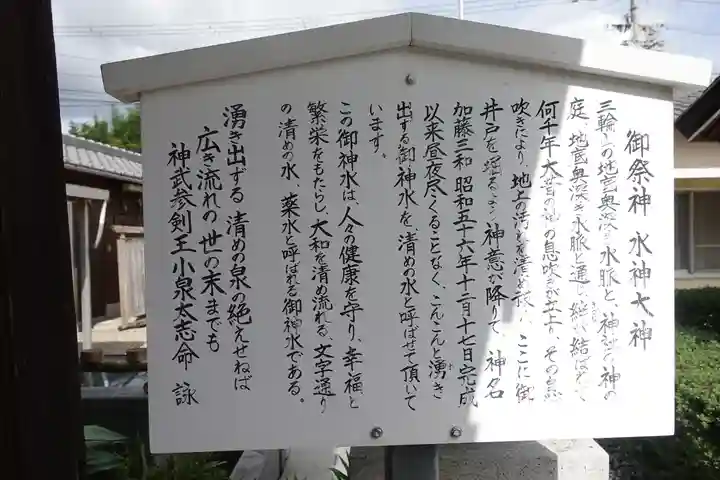 御祭神 水神大神
三輪山の地底奥深き水脈と、神々の神の
庭、地底奥深き水脈と通じ、結ばれて
何千年、大昔の神の息吹きが その息
吹きにより、地上の汚れを清め、ここに御
井戸を掘るよう神意が降りて、神名
加藤三和 昭和五十六年十二月十七日完成
以来昼夜尽くることなく、こんこんと湧き
出ずる御神水を、清めの水と呼ばせて頂いて
います。
この御神水は、人々の健康を守り、幸福と
繁栄をもたらし、大和を清め流れる、文字通り
の清めの水、薬水と呼ばれる御神水である。
湧き出ずる 清めの泉の絶えせねば
広き流れの 世の末までも
神武参剣王小泉太志命 詠